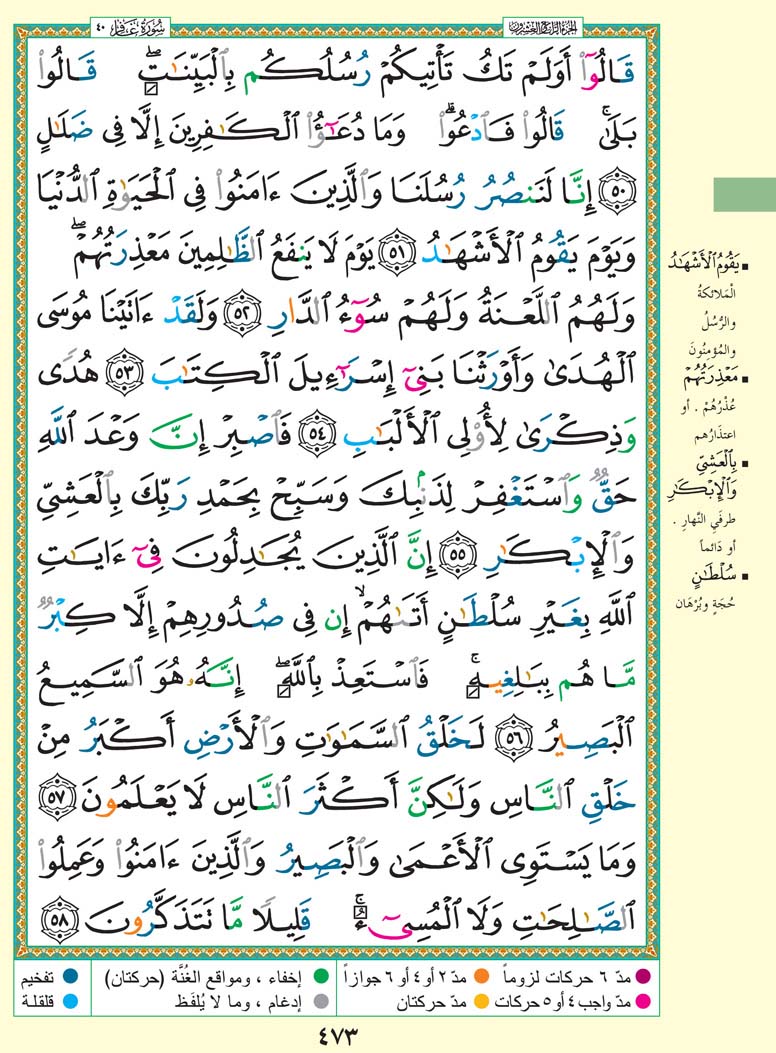 الجزء الرابع والعشرون
سُورَةُ غَافِرٍ ٤٠
قَالُوٓا۟ أَوَلَمْ تَكُ تَأْتِيكُمْ رُسُلُكُم بِٱلْبَيِّنَـٰتِ ۖ قَالُوا۟
بَلَىٰ ۚ قَالُوا۟ فَٱدْعُوا۟ ۗ وَمَا دُعَـٰٓؤُا۟ ٱلْكَـٰفِرِينَ إِلَّا فِى ضَلَـٰلٍ
﴿٥٠﴾ إِنَّا لَنَنصُرُ رُسُلَنَا وَٱلَّذِينَ ءَامَنُوا۟ فِى ٱلْحَيَوٰةِ ٱلدُّنْيَا
وَيَوْمَ يَقُومُ ٱلْأَشْهَـٰدُ ﴿٥١﴾ يَوْمَ لَا يَنفَعُ ٱلظَّـٰلِمِينَ مَعْذِرَتُهُمْ ۖ
وَلَهُمُ ٱللَّعْنَةُ وَلَهُمْ سُوٓءُ ٱلدَّارِ ﴿٥٢﴾ وَلَقَدْ ءَاتَيْنَا مُوسَى
ٱلْهُدَىٰ وَأَوْرَثْنَا بَنِىٓ إِسْرَٰٓءِيلَ ٱلْكِتَـٰبَ ﴿٥٣﴾ هُدًى
وَذِكْرَىٰ لِأُو۟لِى ٱلْأَلْبَـٰبِ ﴿٥٤﴾ فَٱصْبِرْ إِنَّ وَعْدَ ٱللَّهِ
حَقٌّ وَٱسْتَغْفِرْ لِذَنۢبِكَ وَسَبِّحْ بِحَمْدِ رَبِّكَ بِٱلْعَشِىِّ
وَٱلْإِبْكَـٰرِ ﴿٥٥﴾ إِنَّ ٱلَّذِينَ يُجَـٰدِلُونَ فِىٓ ءَايَـٰتِ
ٱللَّهِ بِغَيْرِ سُلْطَـٰنٍ أَتَىٰهُمْ ۙ إِن فِى صُدُورِهِمْ إِلَّا كِبْرٌ
مَّا هُم بِبَـٰلِغِيهِ ۚ فَٱسْتَعِذْ بِٱللَّهِ ۖ إِنَّهُۥ هُوَ ٱلسَّمِيعُ
ٱلْبَصِيرُ ﴿٥٦﴾ لَخَلْقُ ٱلسَّمَـٰوَٰتِ وَٱلْأَرْضِ أَكْبَرُ مِنْ
خَلْقِ ٱلنَّاسِ وَلَـٰكِنَّ أَكْثَرَ ٱلنَّاسِ لَا يَعْلَمُونَ ﴿٥٧﴾
وَمَا يَسْتَوِى ٱلْأَعْمَىٰ وَٱلْبَصِيرُ وَٱلَّذِينَ ءَامَنُوا۟ وَعَمِلُوا۟
ٱلصَّـٰلِحَـٰتِ وَلَا ٱلْمُسِىٓءُ ۚ قَلِيلًا مَّا تَتَذَكَّرُونَ ﴿٥٨﴾
▪ يَقُومُ ٱلْأَشْهَـٰدُ
الْمَلَائكَةُ
والرُّسُلُ
والمُؤْمِنُونَ
▪ مَعْذِرَتُهُمْ
عُذْرُهُمْ . أو
اعتذَارُهم
▪ بِٱلْعَشِىِّ
وَٱلْإِبْكَـٰرِ
طرفَي النَّهارِ .
أو دَائماً
▪ سُلْطَـٰنٍ
حُجَةٍ وبُرْهَان
مدّ ٦ حركات لزوماً مدّ ٢ أو ٤ أو ٦ جوازاً إخفاء ، ومواقع الغُنَّة (حركتان) تفخيم
مدّ واجب ٤ أو ٥ حركات مدّ حركتان إدغام ، وما لا يُلفَظ قلقلة
٤٧٣